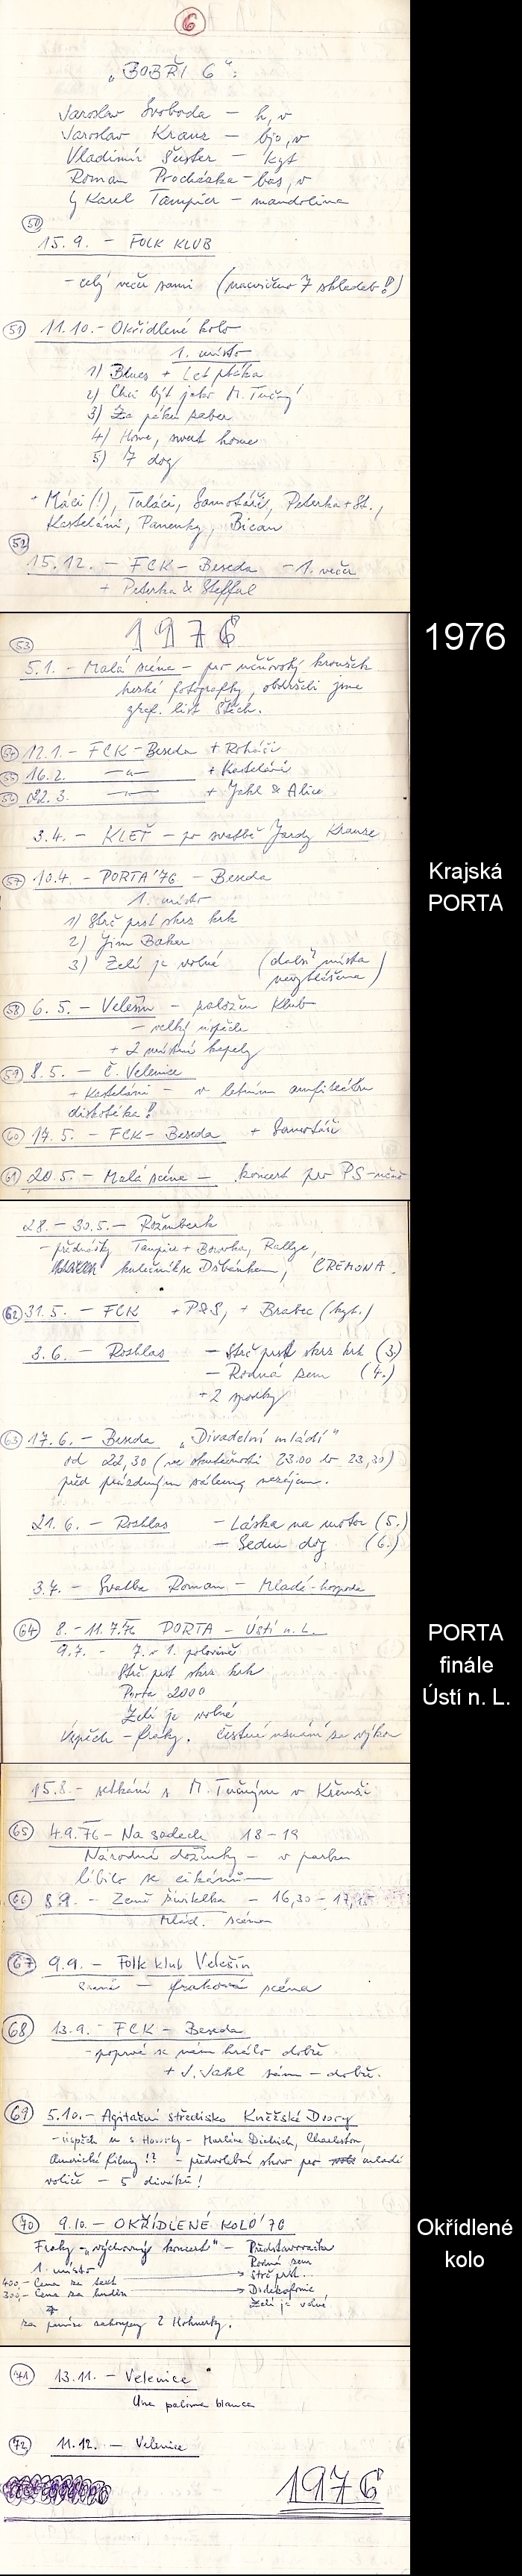 6
„BOBŘI 6“:
Jaroslav Svoboda — h, v
Jaroslav Kraus — bjo, v
Vladimír Šuster — kyt
Roman Procházka — bas, v
Karel Tampier — mandolina
50
15.9. — FOLK KLUB
- celý večer sami (nacvičeno 7 skladeb!)
51 11.10. - Okřídlené kolo
1. místo
1) Blues + Let ptáka
2) Chci být jako M. Tučný
3) Za páku
4) Home, sweet home
5) 7 dog
+ Máci (!), Tuláci, Samotáři, Peterka + St.,
Kasteláni, Panenky, Bican
52
15.12. — FCK - Beseda - 1. večer
+ Peterka & Steffal
1976
1976
53
5.1. - Malá scéna - pro kroužek
fotografky, obdrželi jsme
graf. list Štěch.
54 12.1. - FCK - Beseda + Roháči
55 16.2. —"— + Kasteláni
56 22.3. —"— + Jahl & Alice
3.4. - KLEŤ - po svatbě Jardy Krause
Krajská
PORTA
57 10.4. - PORTA '76 - Beseda
1. místo
1) Strč prst skrz krk
2) Jim Baker
3) Zelí je volné (další místa
neuvolněna)
58 6.5. - Velešín - založen klub
- velký úspěch
+ 2 místní kapely
59 8.5. - Č. Velenice
+ Kasteláni - v letním amfiteátru
diskotéka!
60 17.5. - FCK - Beseda + Samotáři
61 20.5. - Malá scéna - koncert pro PS
28. - 30.5. - Rožmberk
- přednášky Tampier + Rallye,
CREMONA.
62 31.5. - FCK + P&S, + Brabec (kyt.)
3.6. - Rozhlas - Strč prst skrz krk (3.)
- Rodná zem (4.)
+ 2 spodky
63 17.6. - Beseda „Divadelní mládí“
od 22,30 (ve skutečnosti 23.00 do 23,30)
před prázdným sálem
21.6. - Rozhlas - Láska na motor (5.)
- Sedm dog (6.)
3.7. - Svatba Roman - Mladé - hospoda
PORTA
finále
Ústí n. L.
64 8. - 11.7.76 PORTA - Ústí n. L.
9.7. - 7. v 1. polovině
Strč prst skrz krk
Porta 2000
Zelí je volné
Úspěch - fraky. čestné uznání za výkon
15.8. - setkání s M. Tučným v Křemži
65 4.9.76 - Na sadech 18 - 19
Národní dožínky - v parku
líbilo se cikánům
66 8.9. - Země živitelka - 16,30 - 17,15
Mlád. scéna
67 9.9. - Folk klub Velešín
- fraková scéna
68 13.9. - FCK - Beseda
- poprvé se nám hrálo dobře
+ J. Jahl sám - dobře.
69 5.10. - Agitační středisko Kněžské Dvory
- úspěch Marlene Dietrich, Charleston,
Americké filmy!? - předvolební show pro mladé
voliče - 5 diváků!
Okřídlené
kolo
70 9.10. - OKŘÍDLENÉ KOLO '76
Fraky - „výchovný koncert“ - Představovačka
1. místo Rodná zem
400,- Cena za text Strč prst...
300,- Cena za hudbu Dodekafonie
Zelí je volné
za peníze zakoupeny 2 Hohnerky.
71 13.11. - Velenice
Una paloma blanca
72 11.12. - Velenice
1976